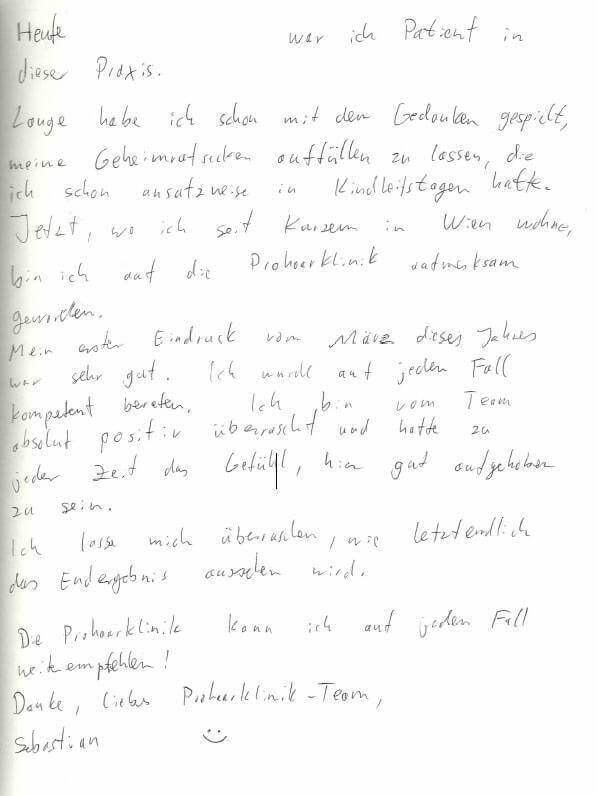 Heute war ich Patient in
dieser Praxis.
Lange habe ich schon mit dem Gedanken gespielt,
meine Geheimratsecken auffüllen zu lassen, die
ich schon ansatzweise in Kindheitstagen hatte.
Jetzt, wo ich seit Kurzem in Wien wohne,
bin ich auf die Prohaarklinik aufmerksam
geworden.
Mein erster Eindruck vom März dieses Jahres
war sehr gut. Ich wurde auf jeden Fall
kompetent beraten. Ich bin vom Team
absolut positiv überrascht und hatte zu
jeder Zeit das Gefühl, hier gut aufgehoben
zu sein.
Ich lasse mich überraschen, wie letztendlich
das Endergebnis aussehen wird.
Die Prohaarklinik kann ich auf jeden Fall
weiterempfehlen!
Danke, liebes Prohaarklinik-Team,
Sebastian